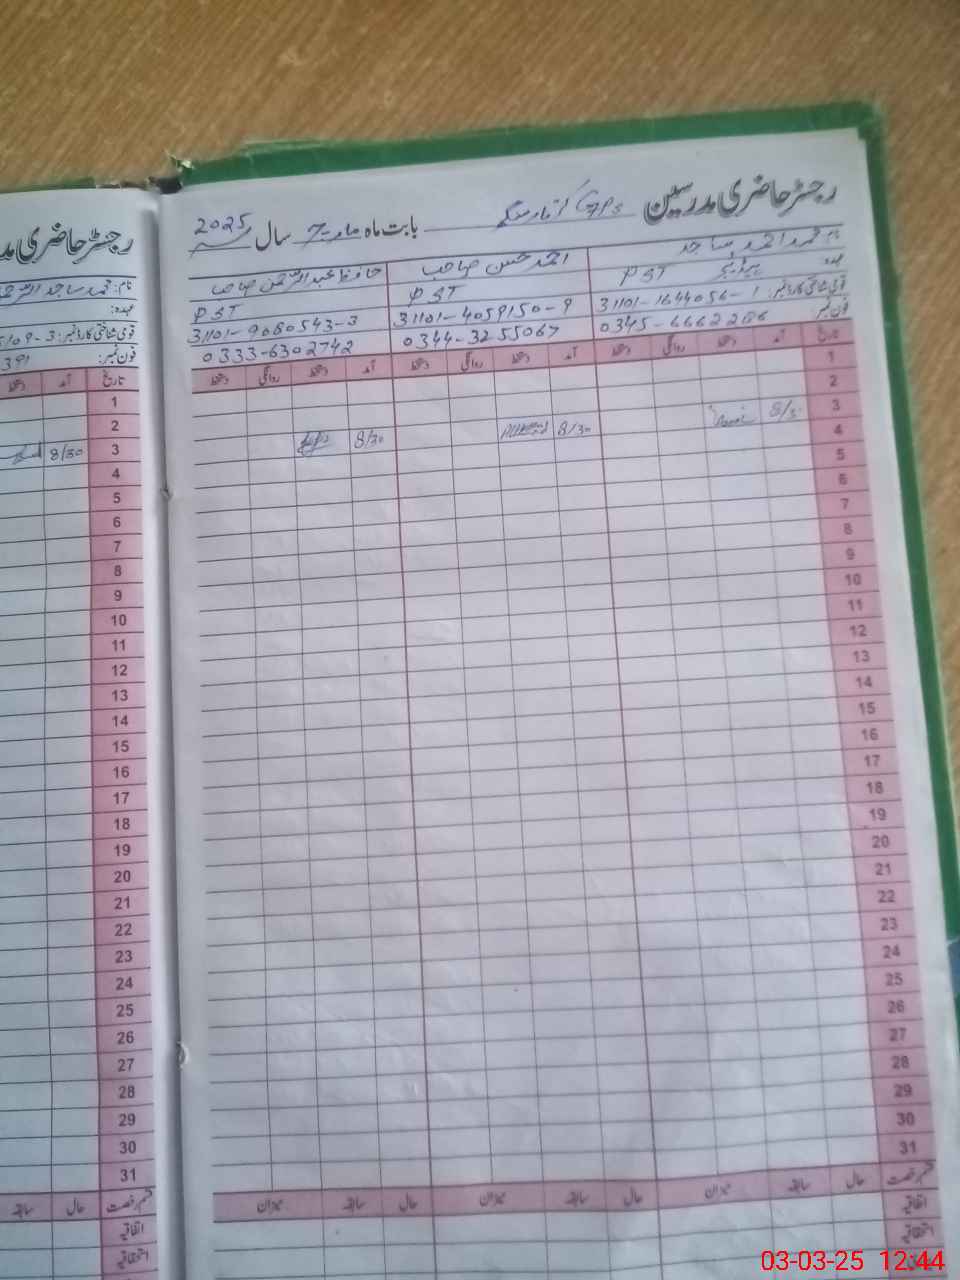 رجسٹر حاضری مدرسین GPS گرنار سنگھ بابت ماہ مارچ سال 2025
نام: محمد احمد ساجد
احمد حسن صاحب
حافظ عبدالرحمن صاحب
عہدہ: PST ہیڈ ٹیچر
PST
PST
قومی شناختی کارڈ نمبر: 31101-1644056-1
31101-4059150-9
31101-9080543-3
فون نمبر: 0345-6662286
0344-3255067
0333-6302742
تاریخ آمد دستخط روانگی دستخط آمد دستخط روانگی دستخط آمد دستخط روانگی دستخط
1
2
3 8/30 8/30 8/30
4
5
6
7
8
9
10
11
12
13
14
15
16
17
18
19
20
21
22
23
24
25
26
27
28
29
30
31
قسم رخصت حال سابقہ میزان حال سابقہ میزان حال سابقہ میزان
اتفاقیہ
استحقاقیہ
رجسٹر حاضری
نام: محمد ساجد
عہدہ:
قومی شناختی کارڈ نمبر: 5109-3
فون نمبر: 391
تاریخ آمد دستخط
1
2
3 8/30
4
5
6
7
8
9
10
11
12
13
14
15
16
17
18
19
20
21
22
23
24
25
26
27
28
29
30
31
قسم رخصت حال سابقہ
اتفاقیہ
استحقاقیہ
03-03-25 12:44